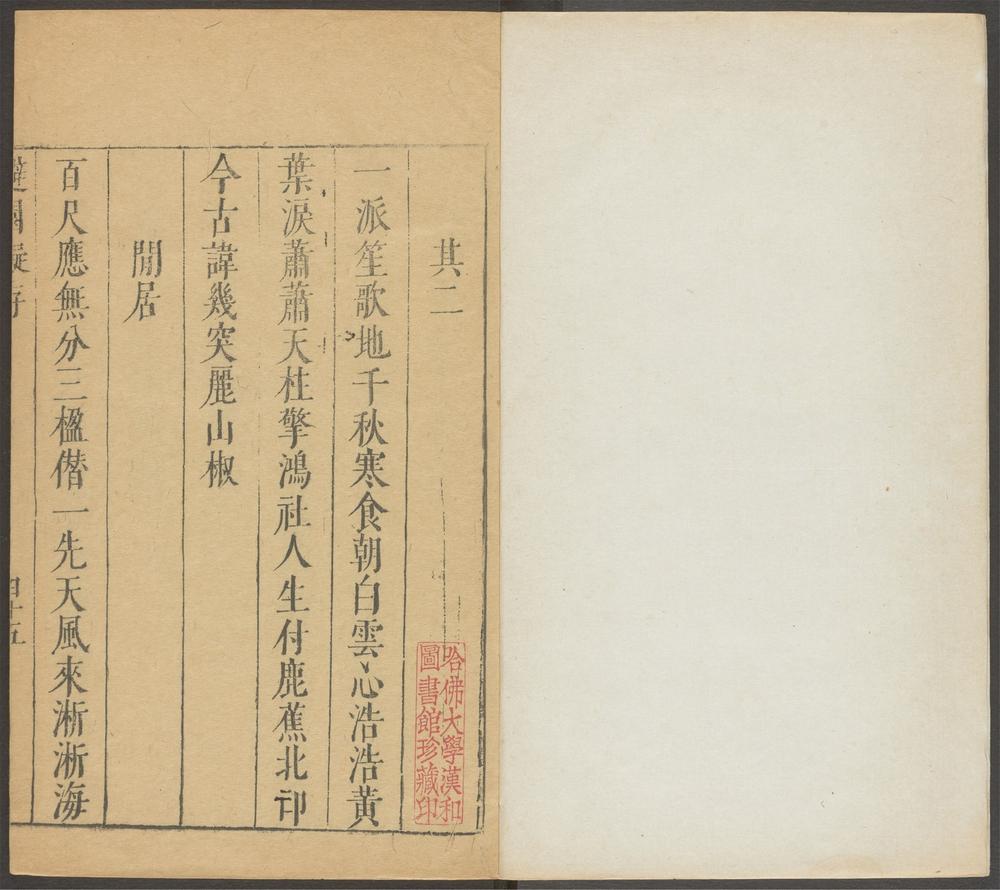 其二
一派笙歌地千秋寒食朝白雲心浩浩黃
葉淚蕭蕭天柱擎鴻社人生付鹿蕉北邙
今古諱幾突麗山椒
閒居
百尺應無分三楹僭一先天風來淅淅海
四十五
哈佛大學漢和
圖書館珍藏印